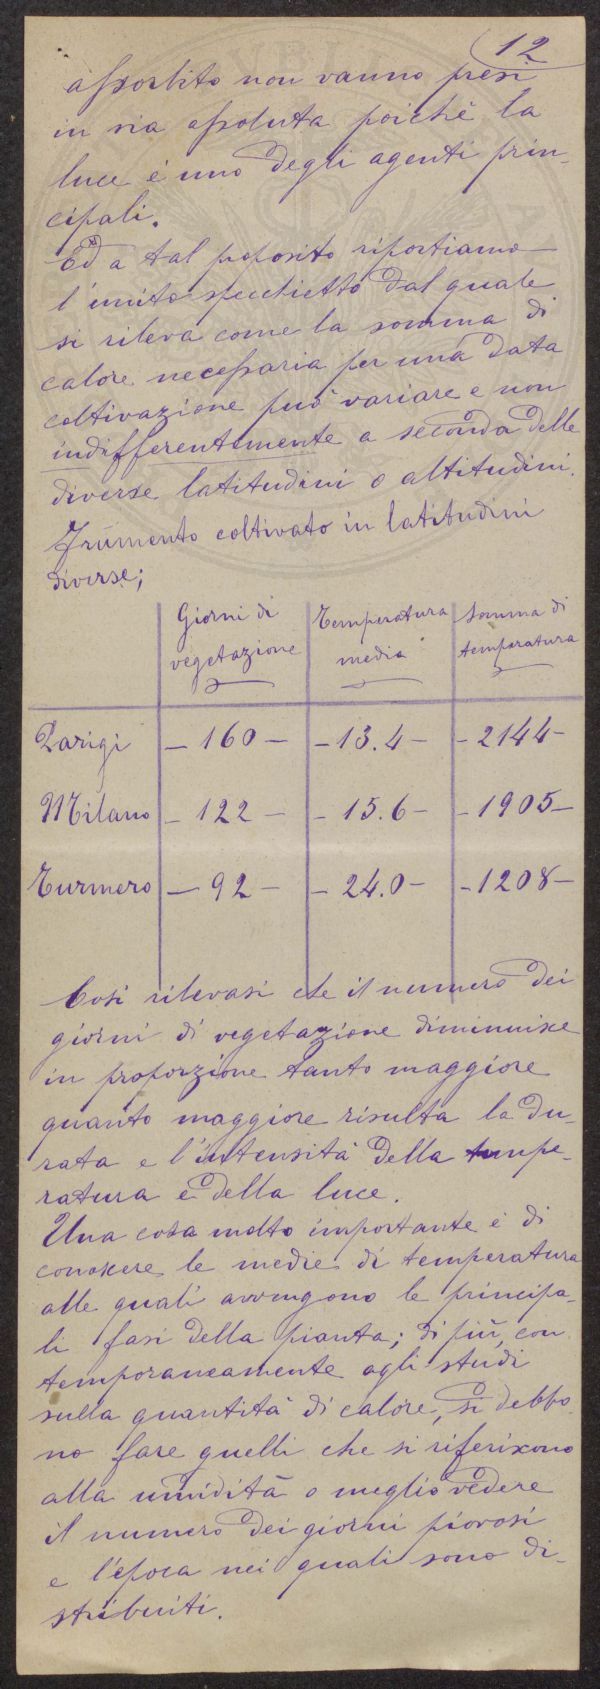 12
assorbito non vanno presi
in via assoluta poichè la
luce è uno degli agenti prin-
cipali.
Ed a tal proposito riportiamo
l'unito specchietto dal quale
si rileva come la somma di
calore necessaria per una data
coltivazione può variare e non
indifferentemente a seconda delle
diverse latitudini o altitudini.
Frumento coltivato in latitudini
diverse;
Giorni di vegetazione Temperatura media Somma di temperatura
Parigi - 160 - - 13.4 - - 2144 -
Milano - 122 - - 15.6 - - 1905 -
Turmero - 92 - - 24.0 - - 1208 -
Così rilevasi che il numero dei
giorni di vegetazione diminuisce
in proporzione tanto maggiore
quanto maggiore risulta la du-
rata e l'intensità della tempe-
ratura e della luce.
Una cosa molto importante è di
conoscere le medie di temperatura
alle quali avvengono le principa-
li fasi della pianta; di più, con
temporaneamente agli studi
sulla quantità di calore, si debbo
no fare quelli che si riferiscono
alla umidità o meglio vedere
il numero dei giorni piovosi
e l'epoca nei quali sono di-
stribuiti.